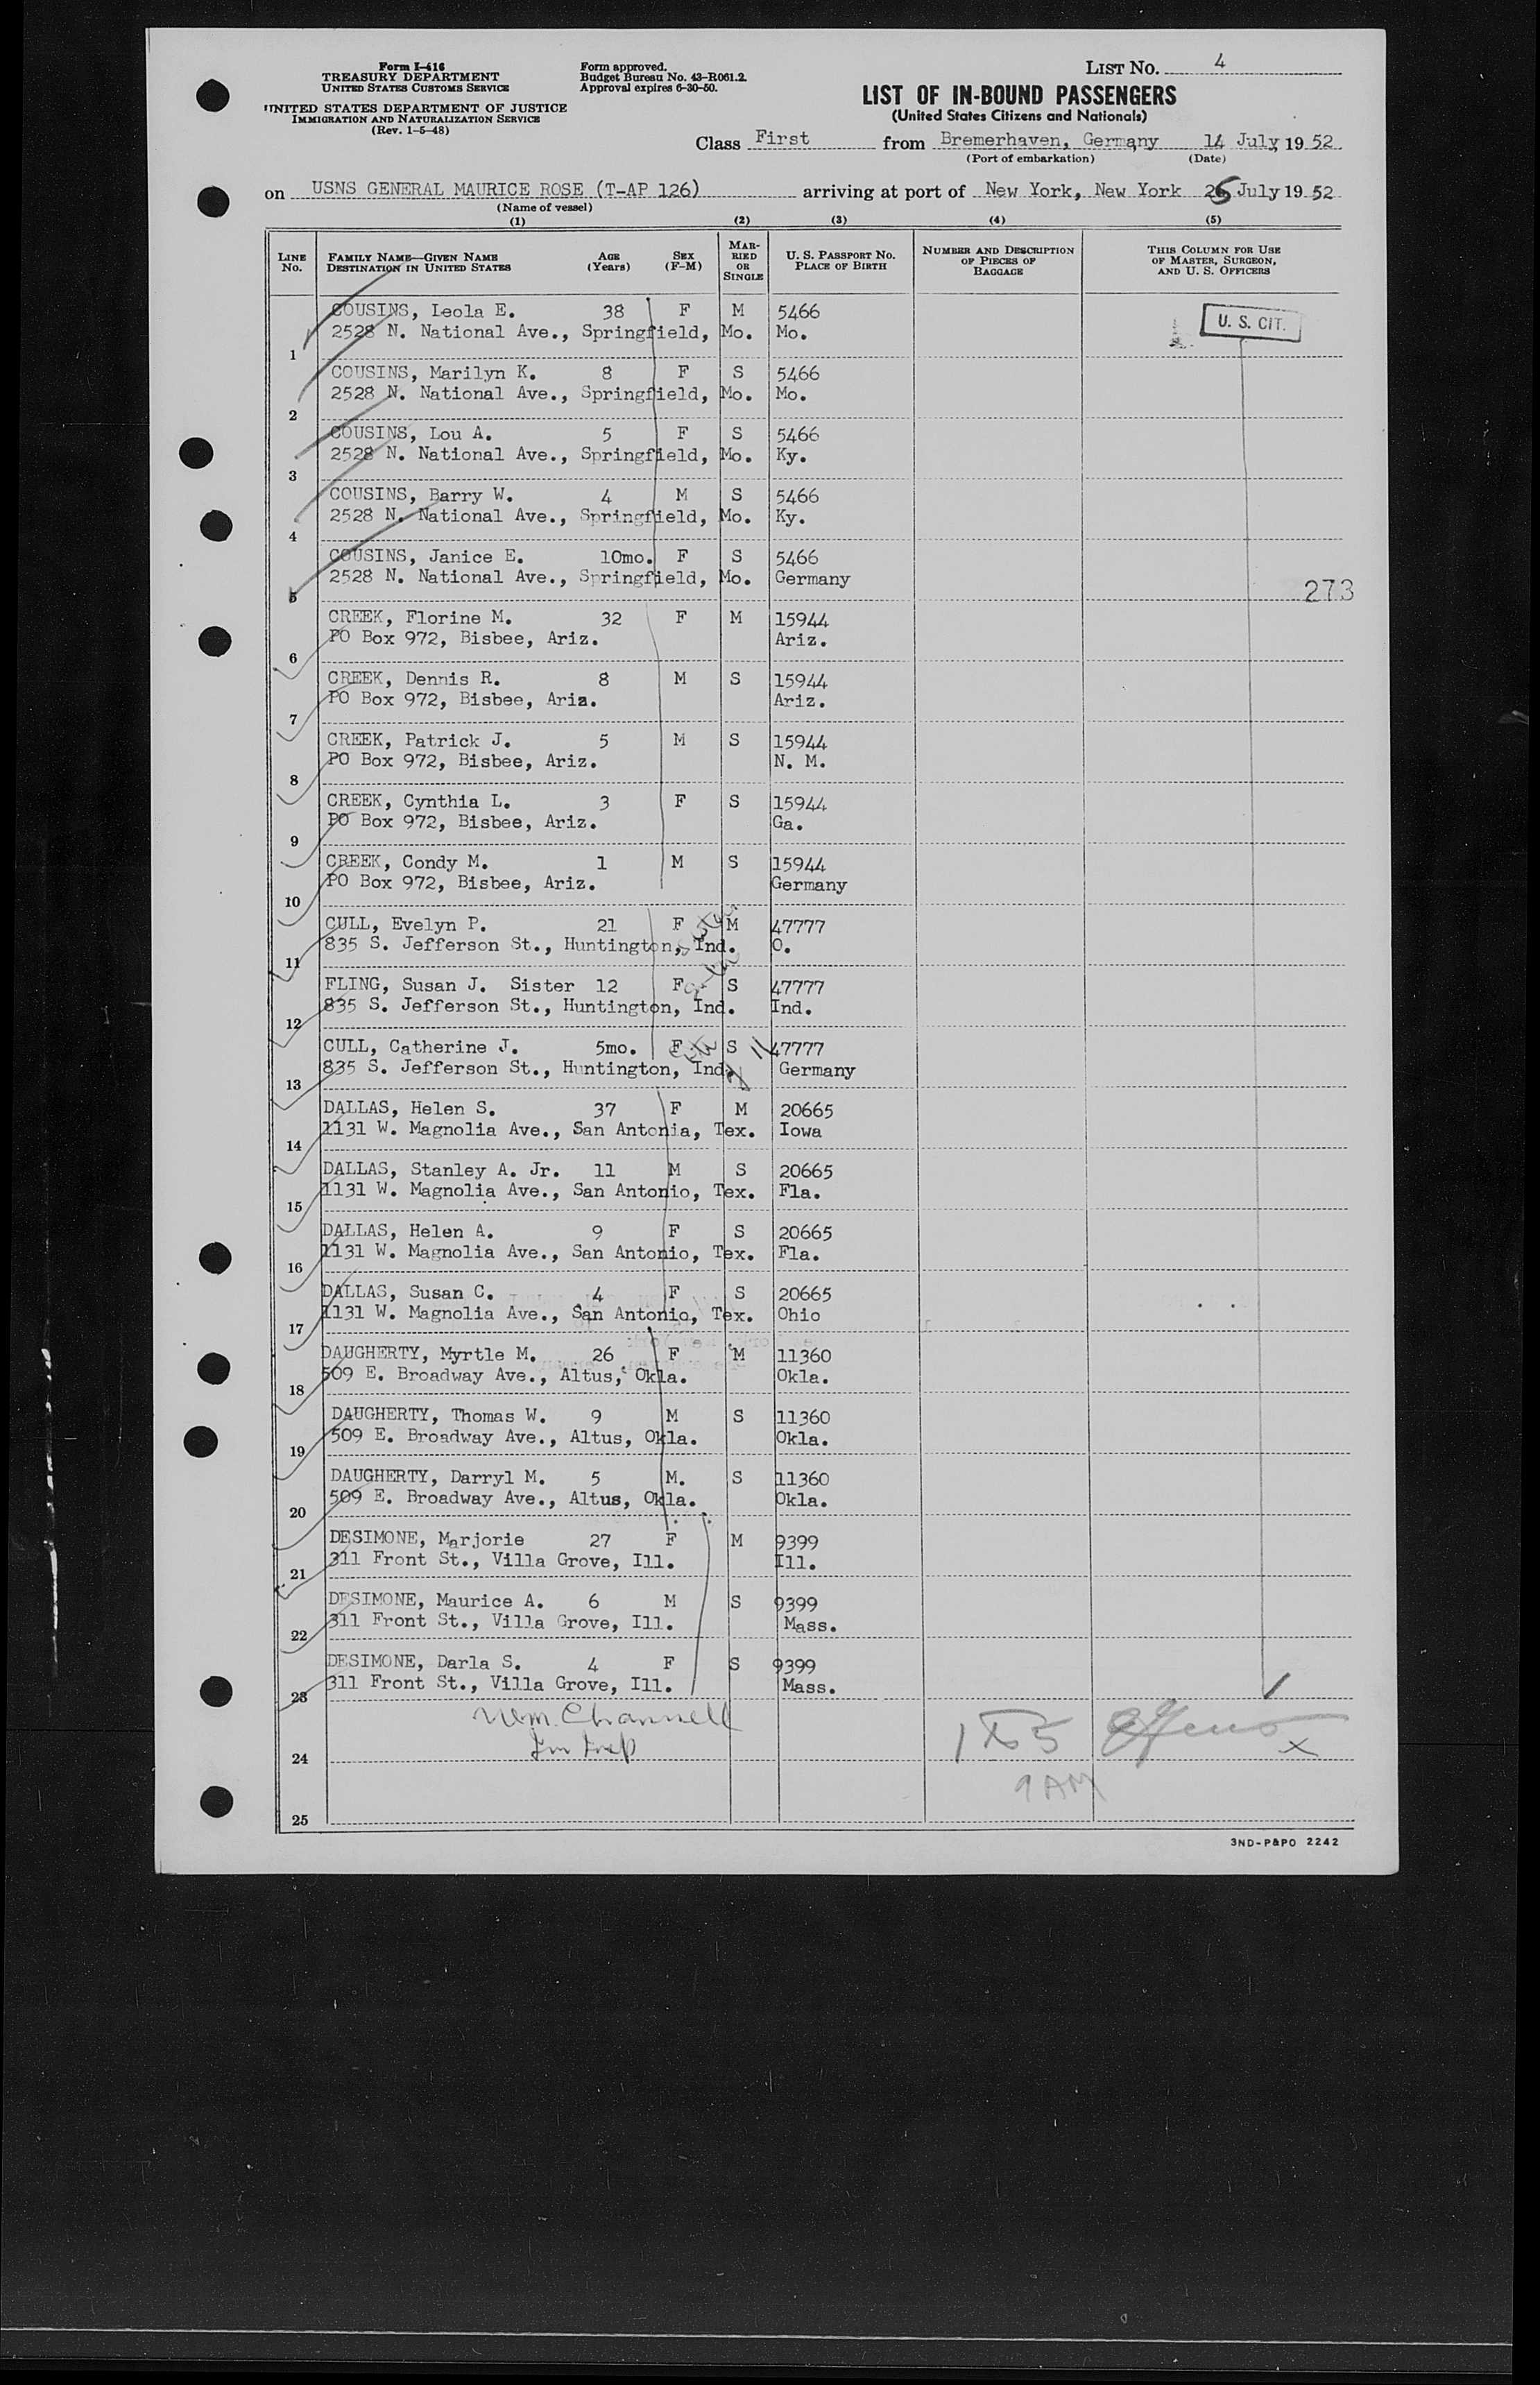 Form I-416
TREASURY DEPARTMENT
UNITED STATES CUSTOMS SERVICE
UNITED STATES DEPARTMENT OF JUSTICE
IMMIGRATION AND NATURALIZATION SERVICE
(Rev. 1-5-48)
Form approved.
Budget Bureau No. 43-R061.2.
Approval expires 6-30-50.
LIST NO. 4
LIST OF IN-BOUND PASSENGERS
(United States Citizens and Nationals)
Class First from Bremerhaven, Germany 14 July, 19 52
(Port of embarkation) (Date)
on USNS GENERAL MAURICE ROSE (T-AP 126) arriving at port of New York, New York 25 July 19 52
(Name of vessel)
(1) (2) (3) (4) (5)
LINE NO. FAMILY NAME—GIVEN NAME DESTINATION IN UNITED STATES AGE (Years) SEX (F-M) MARRIED OR SINGLE U. S. PASSPORT NO. PLACE OF BIRTH NUMBER AND DESCRIPTION OF PIECES OF BAGGAGE THIS COLUMN FOR USE OF MASTER, SURGEON, AND U. S. OFFICERS
COUSINS, Leola E. 38 F M 5466 U. S. CIT.
1 2528 N. National Ave., Springfield, Mo. Mo.
COUSINS, Marilyn K. 8 F S 5466
2 2528 N. National Ave., Springfield, Mo. Mo.
COUSINS, Lou A. 5 F S 5466
3 2528 N. National Ave., Springfield, Mo. Ky.
COUSINS, Barry W. 4 M S 5466
4 2528 N. National Ave., Springfield, Mo. Ky.
COUSINS, Janice E. 10mo. F S 5466
5 2528 N. National Ave., Springfield, Mo. Germany 273
CREEK, Florine M. 32 F M 15944
6 PO Box 972, Bisbee, Ariz. Ariz.
CREEK, Dennis R. 8 M S 15944
7 PO Box 972, Bisbee, Ariz. Ariz.
CREEK, Patrick J. 5 M S 15944
8 PO Box 972, Bisbee, Ariz. N. M.
CREEK, Cynthia L. 3 F S 15944
9 PO Box 972, Bisbee, Ariz. Ga.
CREEK, Condy M. 1 M S 15944
10 PO Box 972, Bisbee, Ariz. Germany
CULL, Evelyn P. 21 F M 47777
11 835 S. Jefferson St., Huntington, Ind. O.
FLING, Susan J. Sister 12 F S 47777
12 835 S. Jefferson St., Huntington, Ind. Ind.
CULL, Catherine J. 5mo. F S 47777
13 835 S. Jefferson St., Huntington, Ind. Germany
DALLAS, Helen S. 37 F M 20665
14 1131 W. Magnolia Ave., San Antonia, Tex. Iowa
DALLAS, Stanley A. Jr. 11 M S 20665
15 1131 W. Magnolia Ave., San Antonio, Tex. Fla.
DALLAS, Helen A. 9 F S 20665
16 1131 W. Magnolia Ave., San Antonio, Tex. Fla.
DALLAS, Susan C. 4 F S 20665
17 1131 W. Magnolia Ave., San Antonio, Tex. Ohio
DAUGHERTY, Myrtle M. 26 F M 11360
18 509 E. Broadway Ave., Altus, Okla. Okla.
DAUGHERTY, Thomas W. 9 M S 11360
19 509 E. Broadway Ave., Altus, Okla. Okla.
DAUGHERTY, Darryl M. 5 M. S 11360
20 509 E. Broadway Ave., Altus, Okla. Okla.
DESIMONE, Marjorie 27 F M 9399
21 311 Front St., Villa Grove, Ill. Ill.
DESIMONE, Maurice A. 6 M S 9399
22 311 Front St., Villa Grove, Ill. Mass.
DESIMONE, Darla S. 4 F S 9399
23 311 Front St., Villa Grove, Ill. Mass.
Wm. Channell
24
9 AM
25
3ND-P&PO 2242